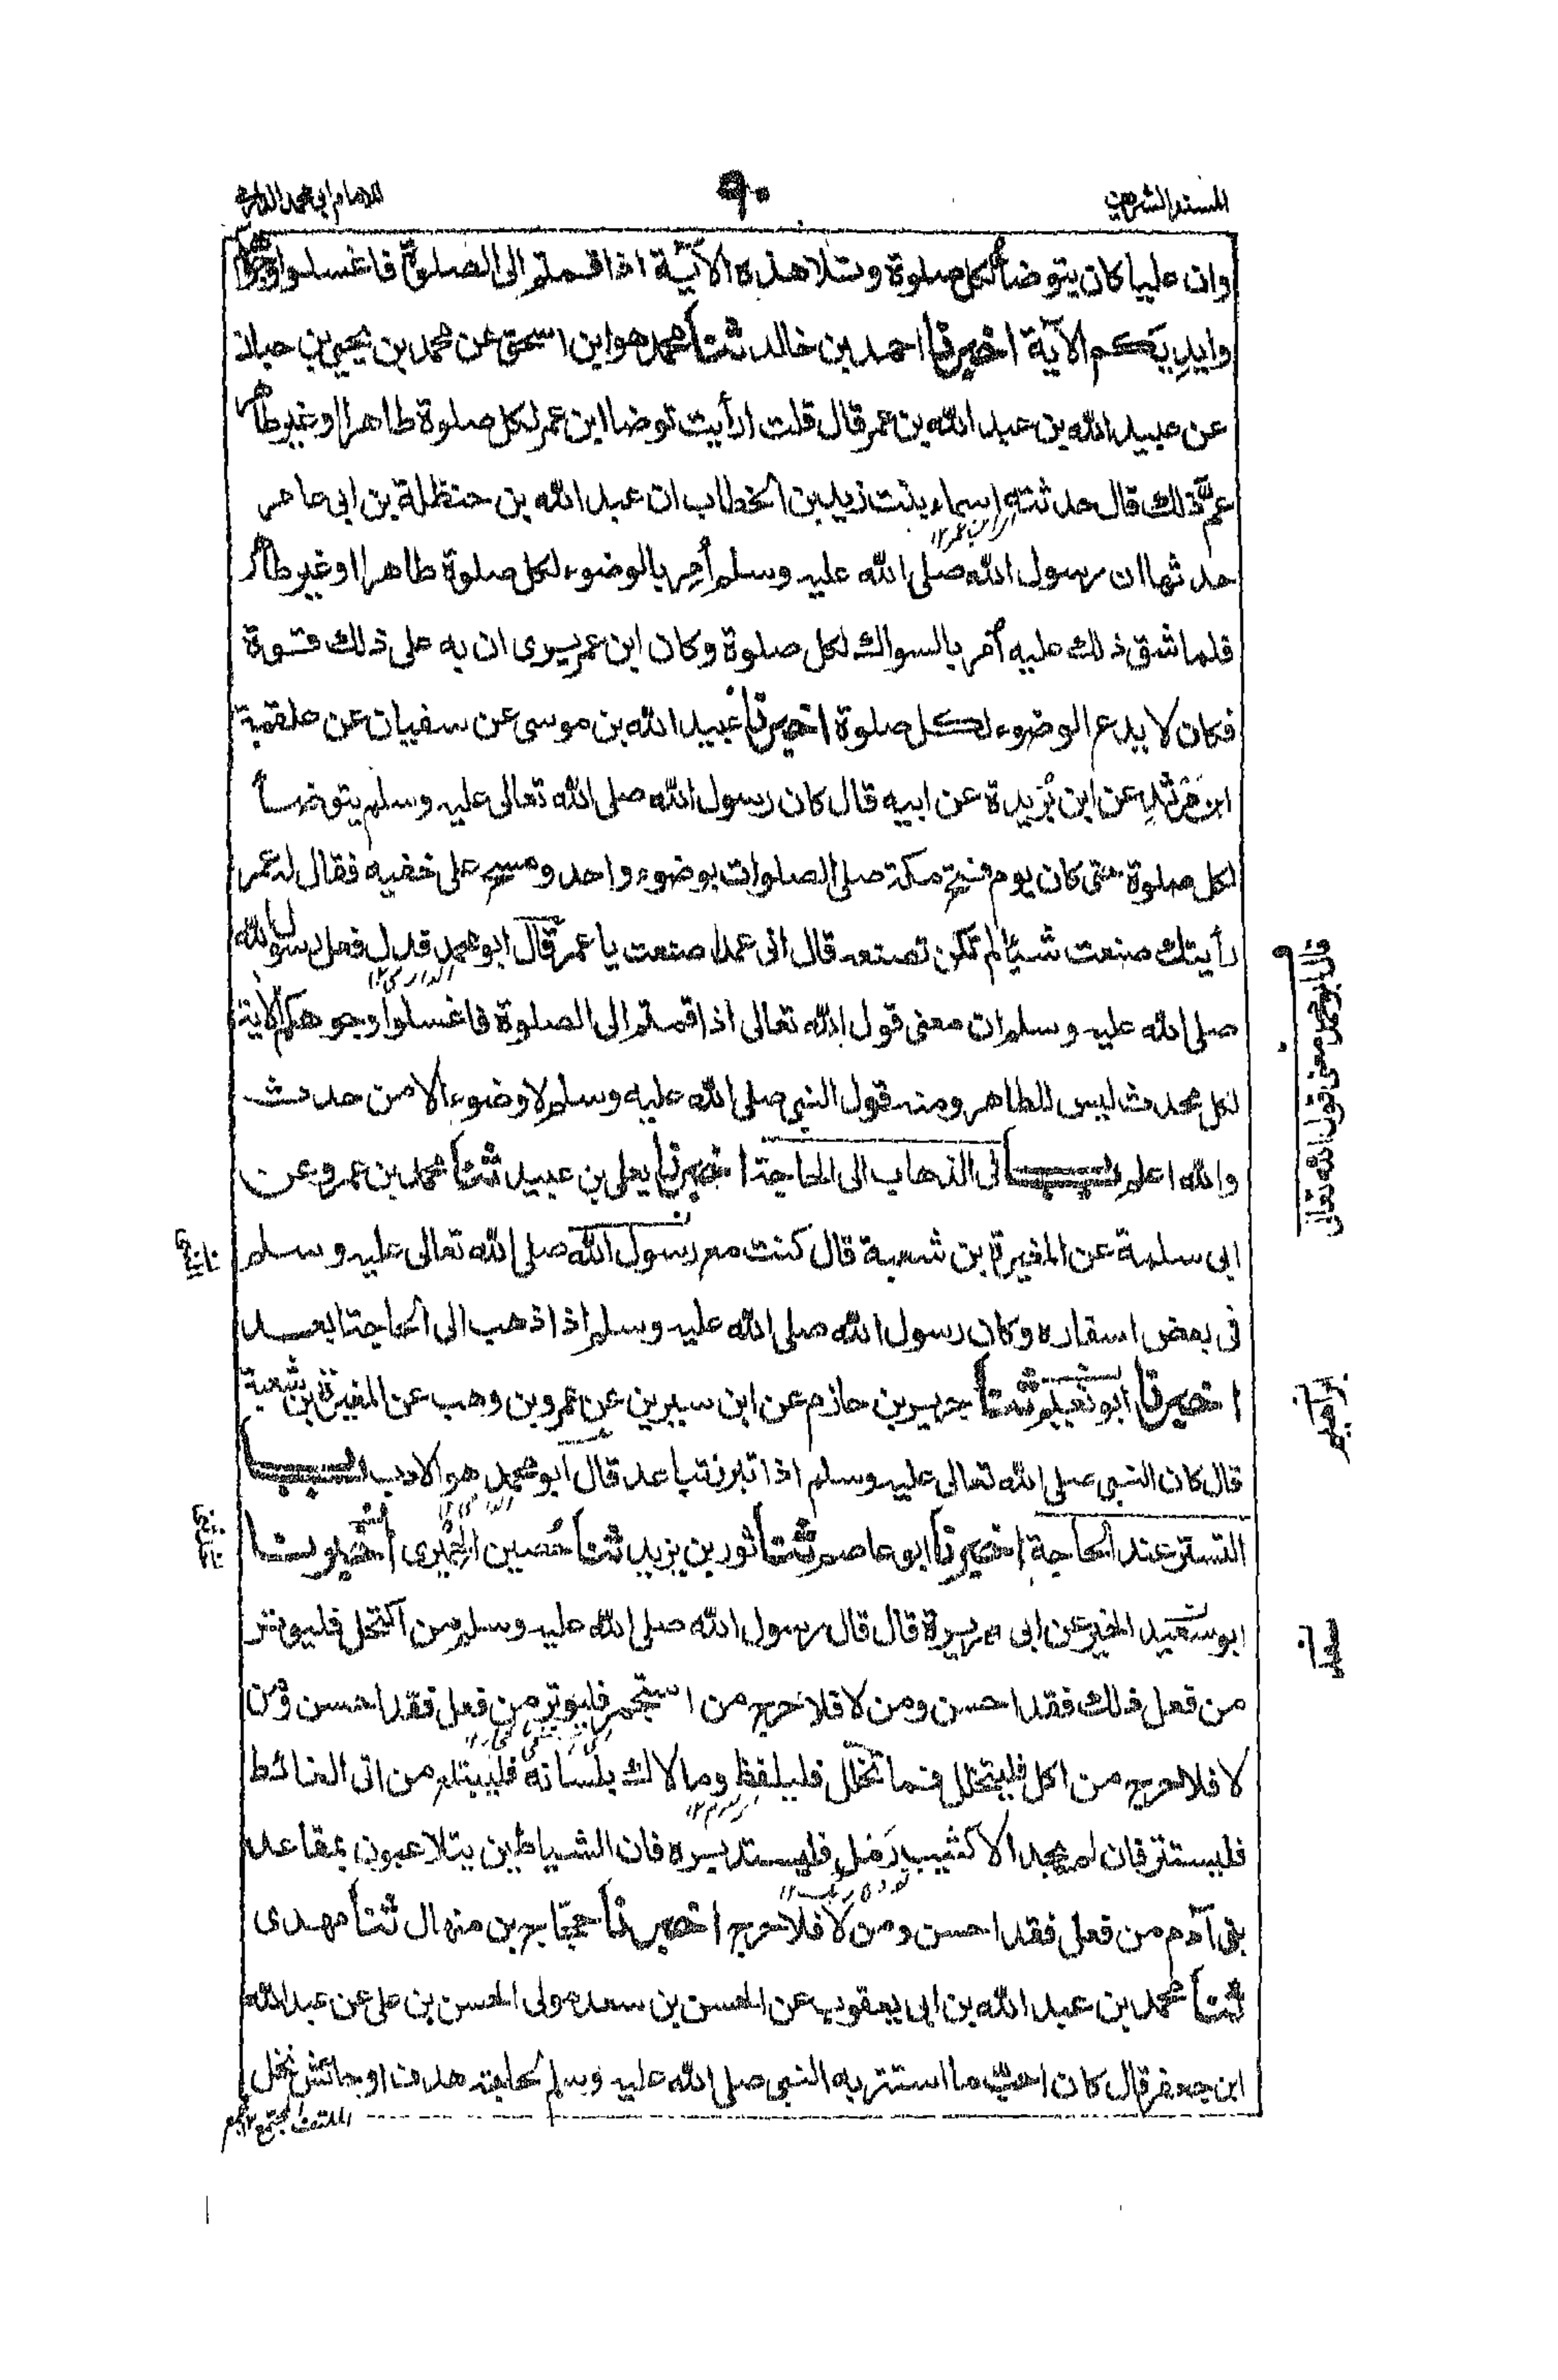 المسند الشريف
٩٠
للامام ابی محمد الدارمی
وان عليا كان يتوضأ لكل صلوة وتلا هذه الآيّة اذا قمتم الى الصلوة فاغسلوا وجوهكم
وايديكم الآية اخبرنا احمد بن خالد ثنا محمد هو ابن اسحق عن محمد بن يحيى بن حبان
عن عبيد الله بن عبد الله بن عمر قال قلت ارأيت توضا ابن عمر لكل صلوة طاهرا او غير طاهر
عمّ ذلك قال حدثته اسماء بنت زيد بن الخطاب ان عبد الله بن حنظلة بن ابى عامر
حدثها ان رسول الله صلى الله عليه وسلم أُمِر بالوضوء لكل صلوة طاهرا او غير طاهر
فلما شق ذلك عليه أمر بالسواك لكل صلوة وكان ابن عمر يرى ان به على ذلك قوة
فكان لا يدع الوضوء لكل صلوة اخبرنا عبيد الله بن موسى عن سفيان عن علقمة
ابن مَرْثَدٍ عن ابن بُرَيدة عن ابيه قال كان رسول الله صلى الله تعالى عليه وسلم يتوضأ
لكل صلوة حتى كان يوم فتح مكة صلى الصلوات بوضوء واحد ومسح على خفيه فقال له عمر
رأيتك صنعت شيئا لم تكن تصنعه قال انى عمدا صنعت يا عمر قال ابو محمد فدل فعل رسول الله
صلى الله عليه وسلم ان معنى قول الله تعالى اذا قمتم الى الصلوة فاغسلوا وجوهكم الآية
لكل محدث ليس للطاهر ومنه قول النبي صلى الله عليه وسلم لا وضوء الا من حدث
والله اعلم باب فى الذهاب الى الحاجة اخبرنا يعلى بن عبيد ثنا محمد بن عمرو عن
ابى سلمة عن المغيرة بن شعبة قال كنت مع رسول الله صلى الله تعالى عليه وسلم
فى بعض اسفاره وكان رسول الله صلى الله عليه وسلم اذا ذهب الى الحاجة ابعد
اخبرنا ابو نعيم ثنا جرير بن حازم عن ابن سيرين عن عمرو بن وهب عن المغيرة بن شعبة
قال كان النبى صلى الله تعالى عليه وسلم اذا تبرز تباعد قال ابو محمد هو الادب باب
التستر عند الحاجة اخبرنا ابو عاصم ثنا ثور بن يزيد ثنا حُصين الحِمْيرى اخبرنا
ابو سعيد الخير عن ابى هريرة قال قال رسول الله صلى الله عليه وسلم من اكتحل فليوتر
من فعل ذلك فقد احسن ومن لا فلا حرج من استجمر فليوتر من فعل فقد احسن ومن
لا فلا حرج من اكل فليتخلل فما تخلل فليلفظ وما لاك بلسانه فليبتلع من اتى الغائط
فليستتر فان لم يجد الا كثيب رَمل فليستدبره فان الشياطين يتلاعبون بمقاعد
بنى آدم من فعل فقد احسن ومن لا فلا حرج اخبرنا حجّاج بن منهال ثنا مهدى
ثنا محمد بن عبد الله بن ابى يعقوب عن الحسن بن سعد مولى الحسن بن على عن عبد الله
ابن جعفر قال كان احبّ ما استتر به النبى صلى الله عليه وسلم لحاجته هدف او حائش نخل
قال ابو محمد معنى قول الله تعالى